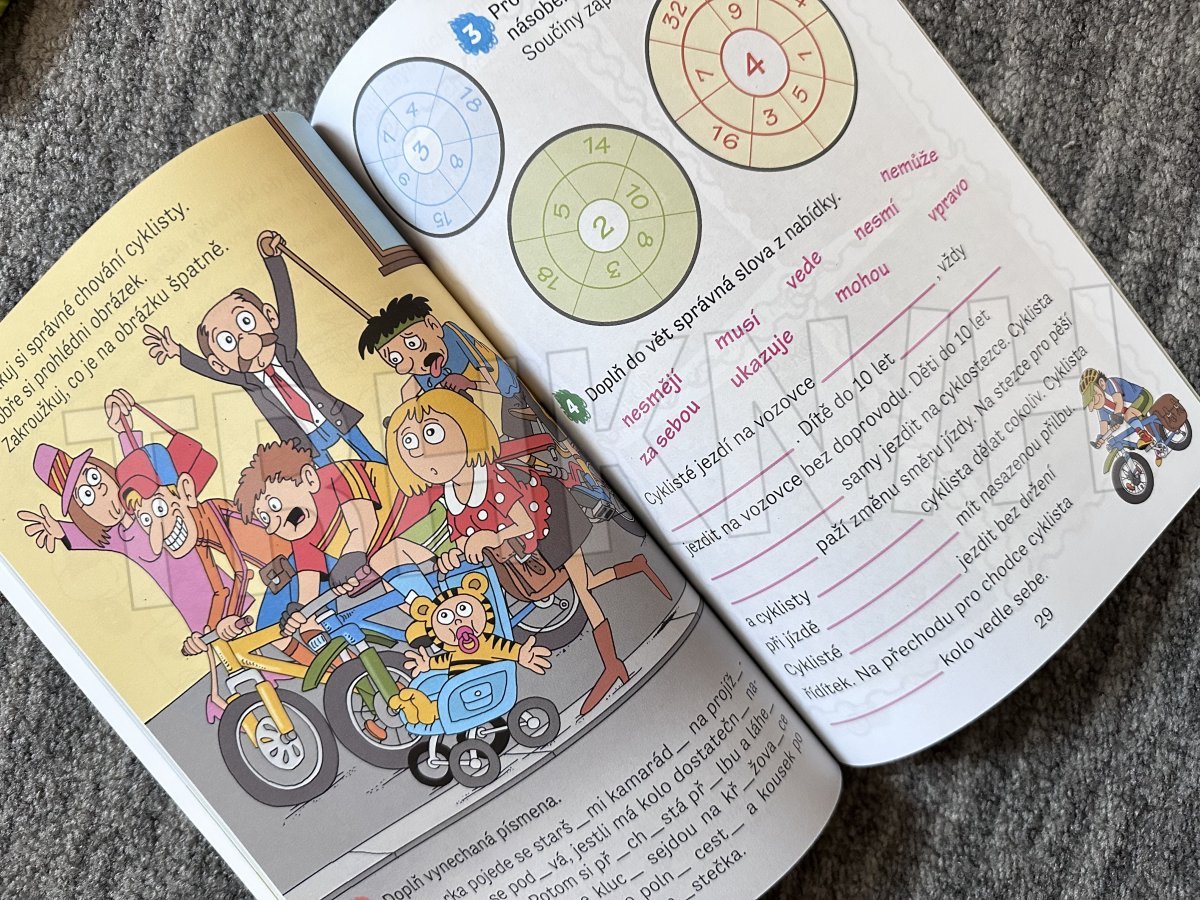 kuj si správné chování cyklisty.
bře si prohlédni obrázek.
Zakroužkuj, co je na obrázku špatně.
Doplň vynechaná písmena.
rka pojede se starš _ mi kamarád _ na projíž _
se pod _ vá, jestli má kolo dostatečn _ na-
Potom si př _ ch _ stá př _ lbu a láhe _
kluc _ sejdou na kř _ žova _ ce
poln _ cest _ a kousek po
_ stečka.
3
násobe
Součiny zap
3
4
18
7
8
9
15
2
14
10
5
8
3
18
4
32
9
4
7
7
5
3
16
4 Doplň do vět správná slova z nabídky.
nesmějí musí vede nesmí nemůže
za sebou ukazuje mohou vpravo
Cyklisté jezdí na vozovce ______, vždy
______. Dítě do 10 let ______
jezdit na vozovce bez doprovodu. Děti do 10 let
______ samy jezdit na cyklostezce. Cyklista
______ paží změnu směru jízdy. Na stezce pro pěší
a cyklisty ______ cyklista dělat cokoliv. Cyklista
při jízdě ______ mít nasazenou přilbu.
Cyklisté ______ jezdit bez držení
řídítek. Na přechodu pro chodce cyklista
______ kolo vedle sebe.
29